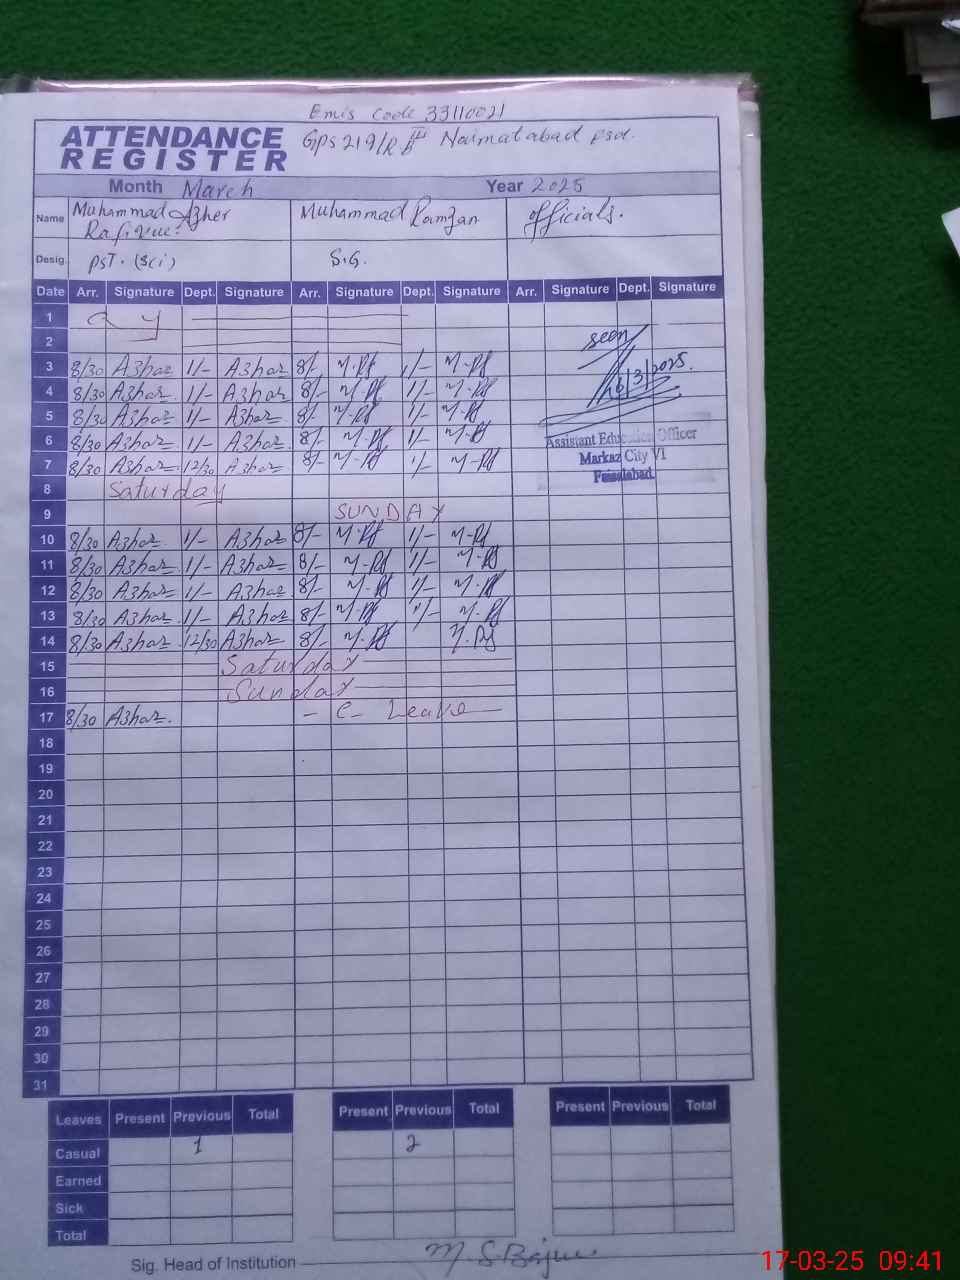 Emis Code 33110021
ATTENDANCE REGISTER
GPS 219/RB III Naimatabad Fsd.
Month March Year 2025
Name Muhammad Azher Rafique. Muhammad Ramzan officials.
Desig. PST. (Sci) S.G.
Date Arr. Signature Dept. Signature Arr. Signature Dept. Signature Arr. Signature Dept. Signature
1
2
seen
3 8/30 Azhar 1/- Azhar 8/- M.Rf 1/- M.Rf
16/3/2025.
4 8/30 Azhar 1/- Azhar 8/- M.Rf 1/- M.Rf
5 8/30 Azhar 1/- Azhar 8/- M.Rf 1/- M.Rf
6 8/30 Azhar 1/- Azhar 8/- M.Rf 1/- M.Rf
Assistant Education Officer
Markaz City VI
Faisalabad.
7 8/30 Azhar 12/30 Azhar 8/- M.Rf 1/- M.Rf
8 Saturday
9 SUNDAY
10 8/30 Azhar 1/- Azhar 8/- M.Rf 1/- M.Rf
11 8/30 Azhar 1/- Azhar 8/- M.Rf 1/- M.Rf
12 8/30 Azhar 1/- Azhar 8/- M.Rf 1/- M.Rf
13 8/30 Azhar 1/- Azhar 8/- M.Rf 1/- M.Rf
14 8/30 Azhar 12/30 Azhar 8/- M.Rf M.Rf
15 Saturday
16 Sunday
17 8/30 Azhar. - C- Leave -
18
19
20
21
22
23
24
25
26
27
28
29
30
31
Leaves Present Previous Total Present Previous Total Present Previous Total
Casual 1 2
Earned
Sick
Total
Sig. Head of Institution
17-03-25 09:41